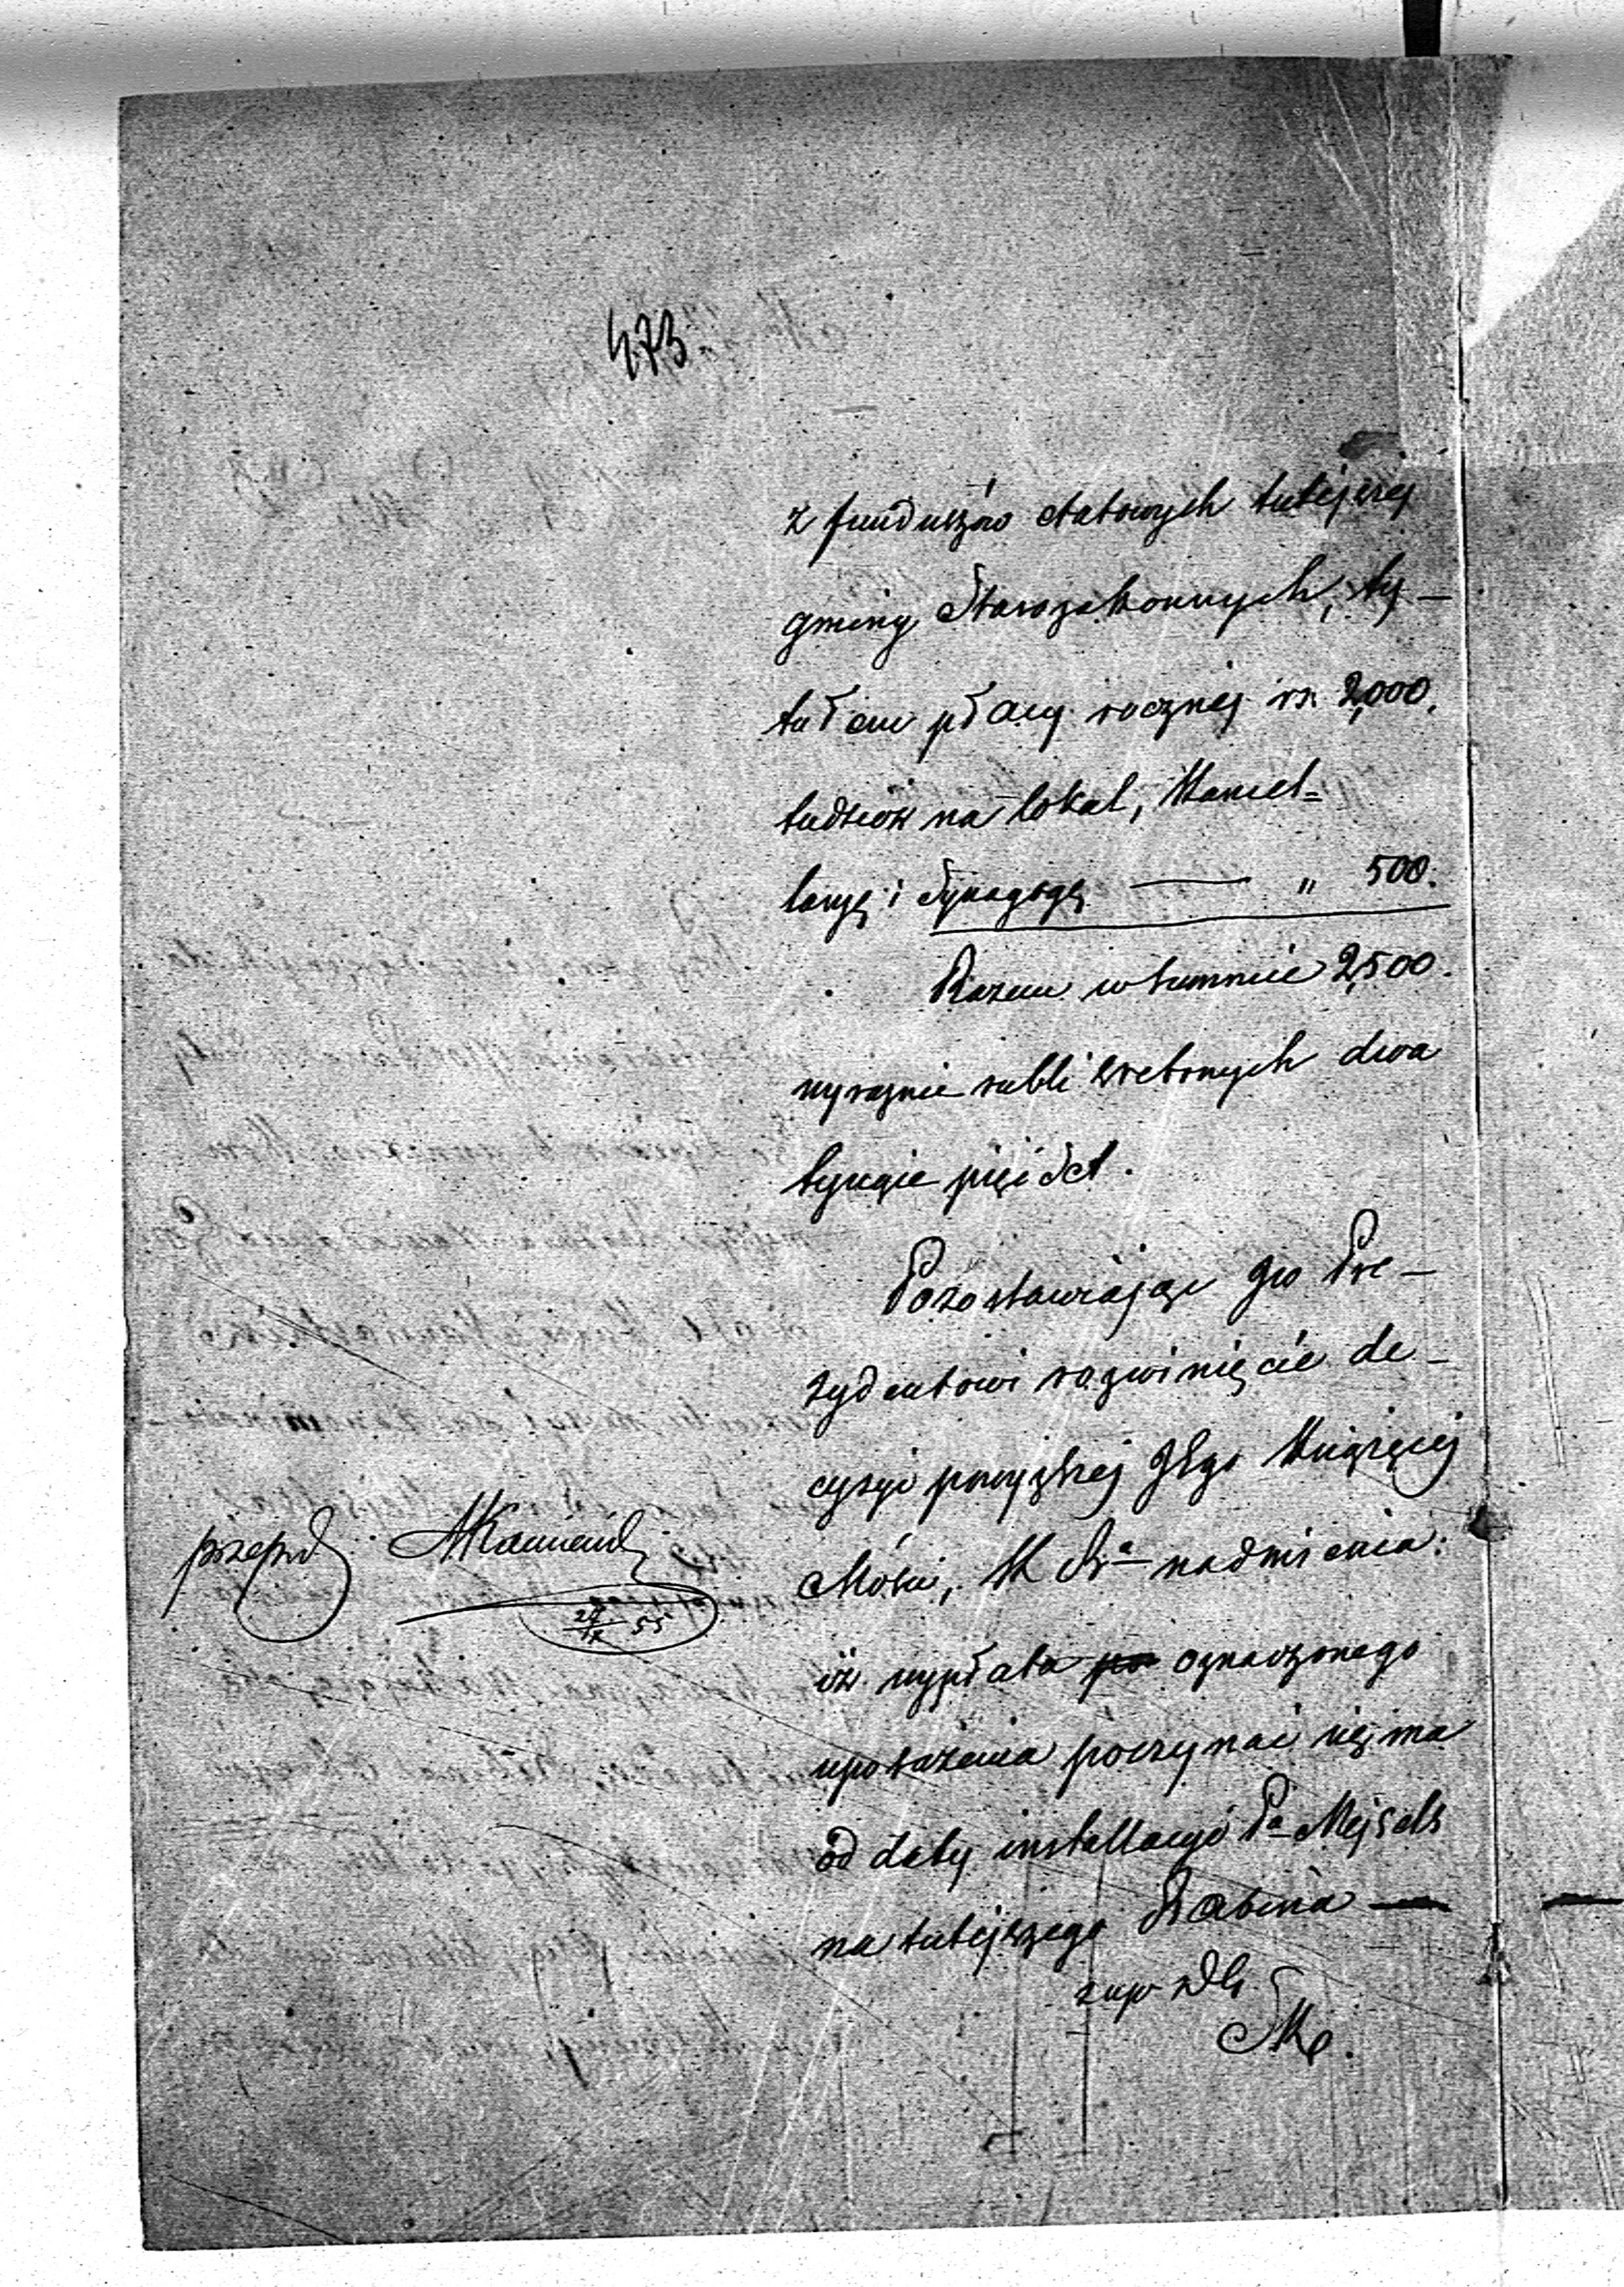 473
z funduszów etatowych tutejszej
gminy Starozakonnych, ty-
tułem płacy rocznej rs. 2,000.
tudzież na lokal, Kancel=
laryę i Synagogę — " 500.
Razem w summie 2,500.
wyraźnie rubli srebrnych dwa
tysiące pięćset.
Pozostawiając Jw Pre-
zydentowi rozwinięcie de-
cyzyi powyższej JEgo Książęcej
Mości, K. R-a nadmienia:
iż wypłata oznaczonego
uposażenia poczynać się ma
od daty installacyi P-a Mejsels
na tutejszego Rabina —
przeprd
27/IX 55